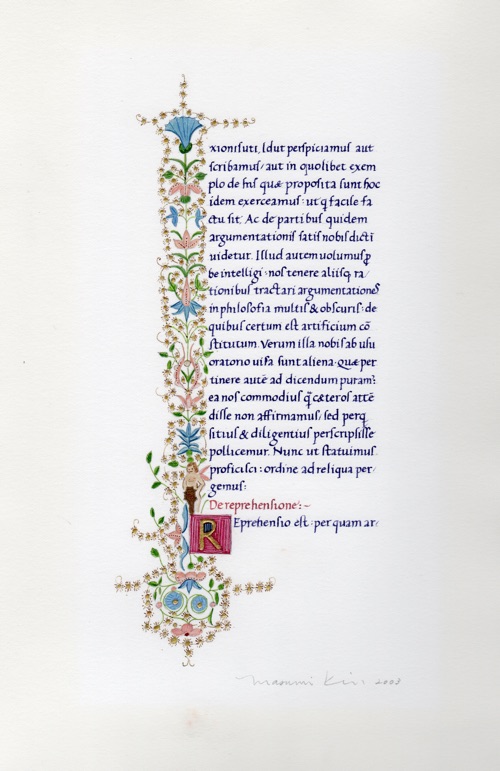 xionisuti. Id ut perspiciamus aut
scribamus/ aut in quolibet exem
plo de his quæ proposita sunt hoc
idem exerceamus: ut q̃ facile fa
ctu sit. Ac de partibus quidem
argumentationis satis nobis dictũ
uidetur. Illud autem uolumus ꝑ
be intelligi: nos tenere aliisq̃ ra/
tionibus tractari argumentationes
in philosofia multis & obscuris: de
quibus certum est artificium cõ
stitutum. Verum illa nobis ab usu
oratorio uisa sunt aliena. Quæ per
tinere autẽ ad dicendum putam:
ea nos commodius q̃ cæteros attẽ
disse non affirmamus/ sed perq̃
sitius & diligentius perscripsisse
pollicemur. Nunc ut statuimus
proficisci: ordine ad reliqua per/
gemus:
De reprehensione:~
REprehensio est: per quam ar/
2008